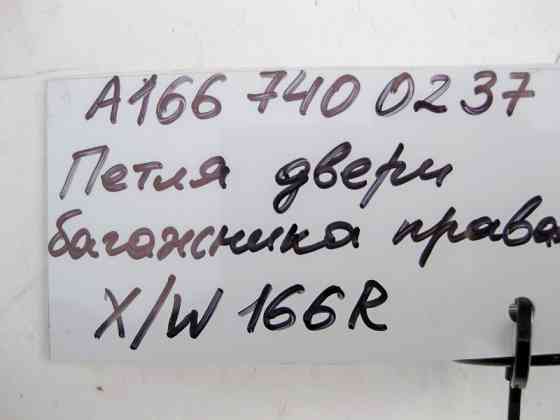 A166 740 0237
Петля двери
багажника права
X/W 166R